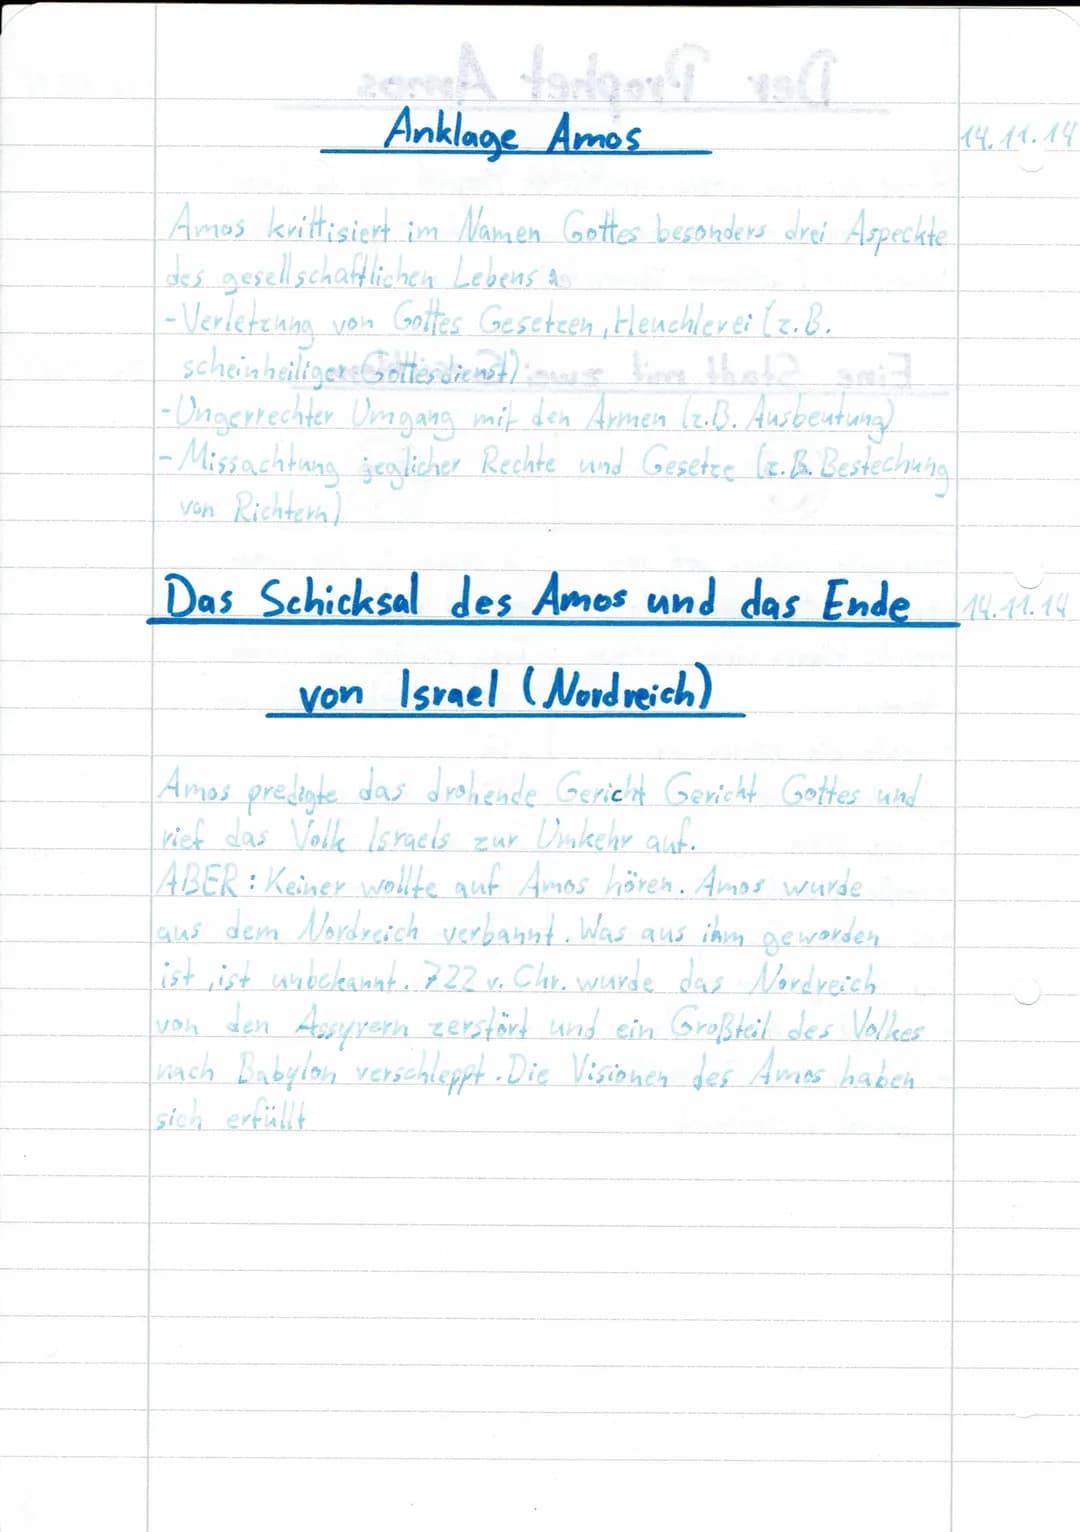 Der Prophet Amos
Anklage Amos 14.11.14
Amos krittisiert im Namen Gottes besonders drei Aspeckte
des gesellschaftlichen Lebens:
-Verletzung von Gottes Gesetzen, Heuchlerei (z.B.
scheinheiliger Gottesdienst)
Eine Stadt mit zwei
-Ungerrechter Umgang mit den Armen (z.B. Ausbeutung)
-Missachtung jeglicher Rechte und Gesetze (z.B. Bestechung
von Richtern)
Das Schicksal des Amos und das Ende 14.11.14
von Israel (Nordreich)
Amos predigte das drohende Gericht Gericht Gottes und
rief das Volk Israels zur Umkehr auf.
ABER: Keiner wollte auf Amos hören. Amos wurde
aus dem Nordreich verbannt. Was aus ihm geworden
ist, ist unbekannt. 722 v. Chr. wurde das Nordreich
von den Assyrern zerstört und ein Großteil des Volkes
nach Babylon verschleppt. Die Visionen des Amos haben
sich erfüllt